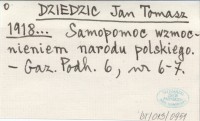 DZIEDZIC Jan Tomasz
1918... Samopomoc wzmoc-
nieniem narodu polskiego.
– Gaz. Podh. 6, nr 6-7.